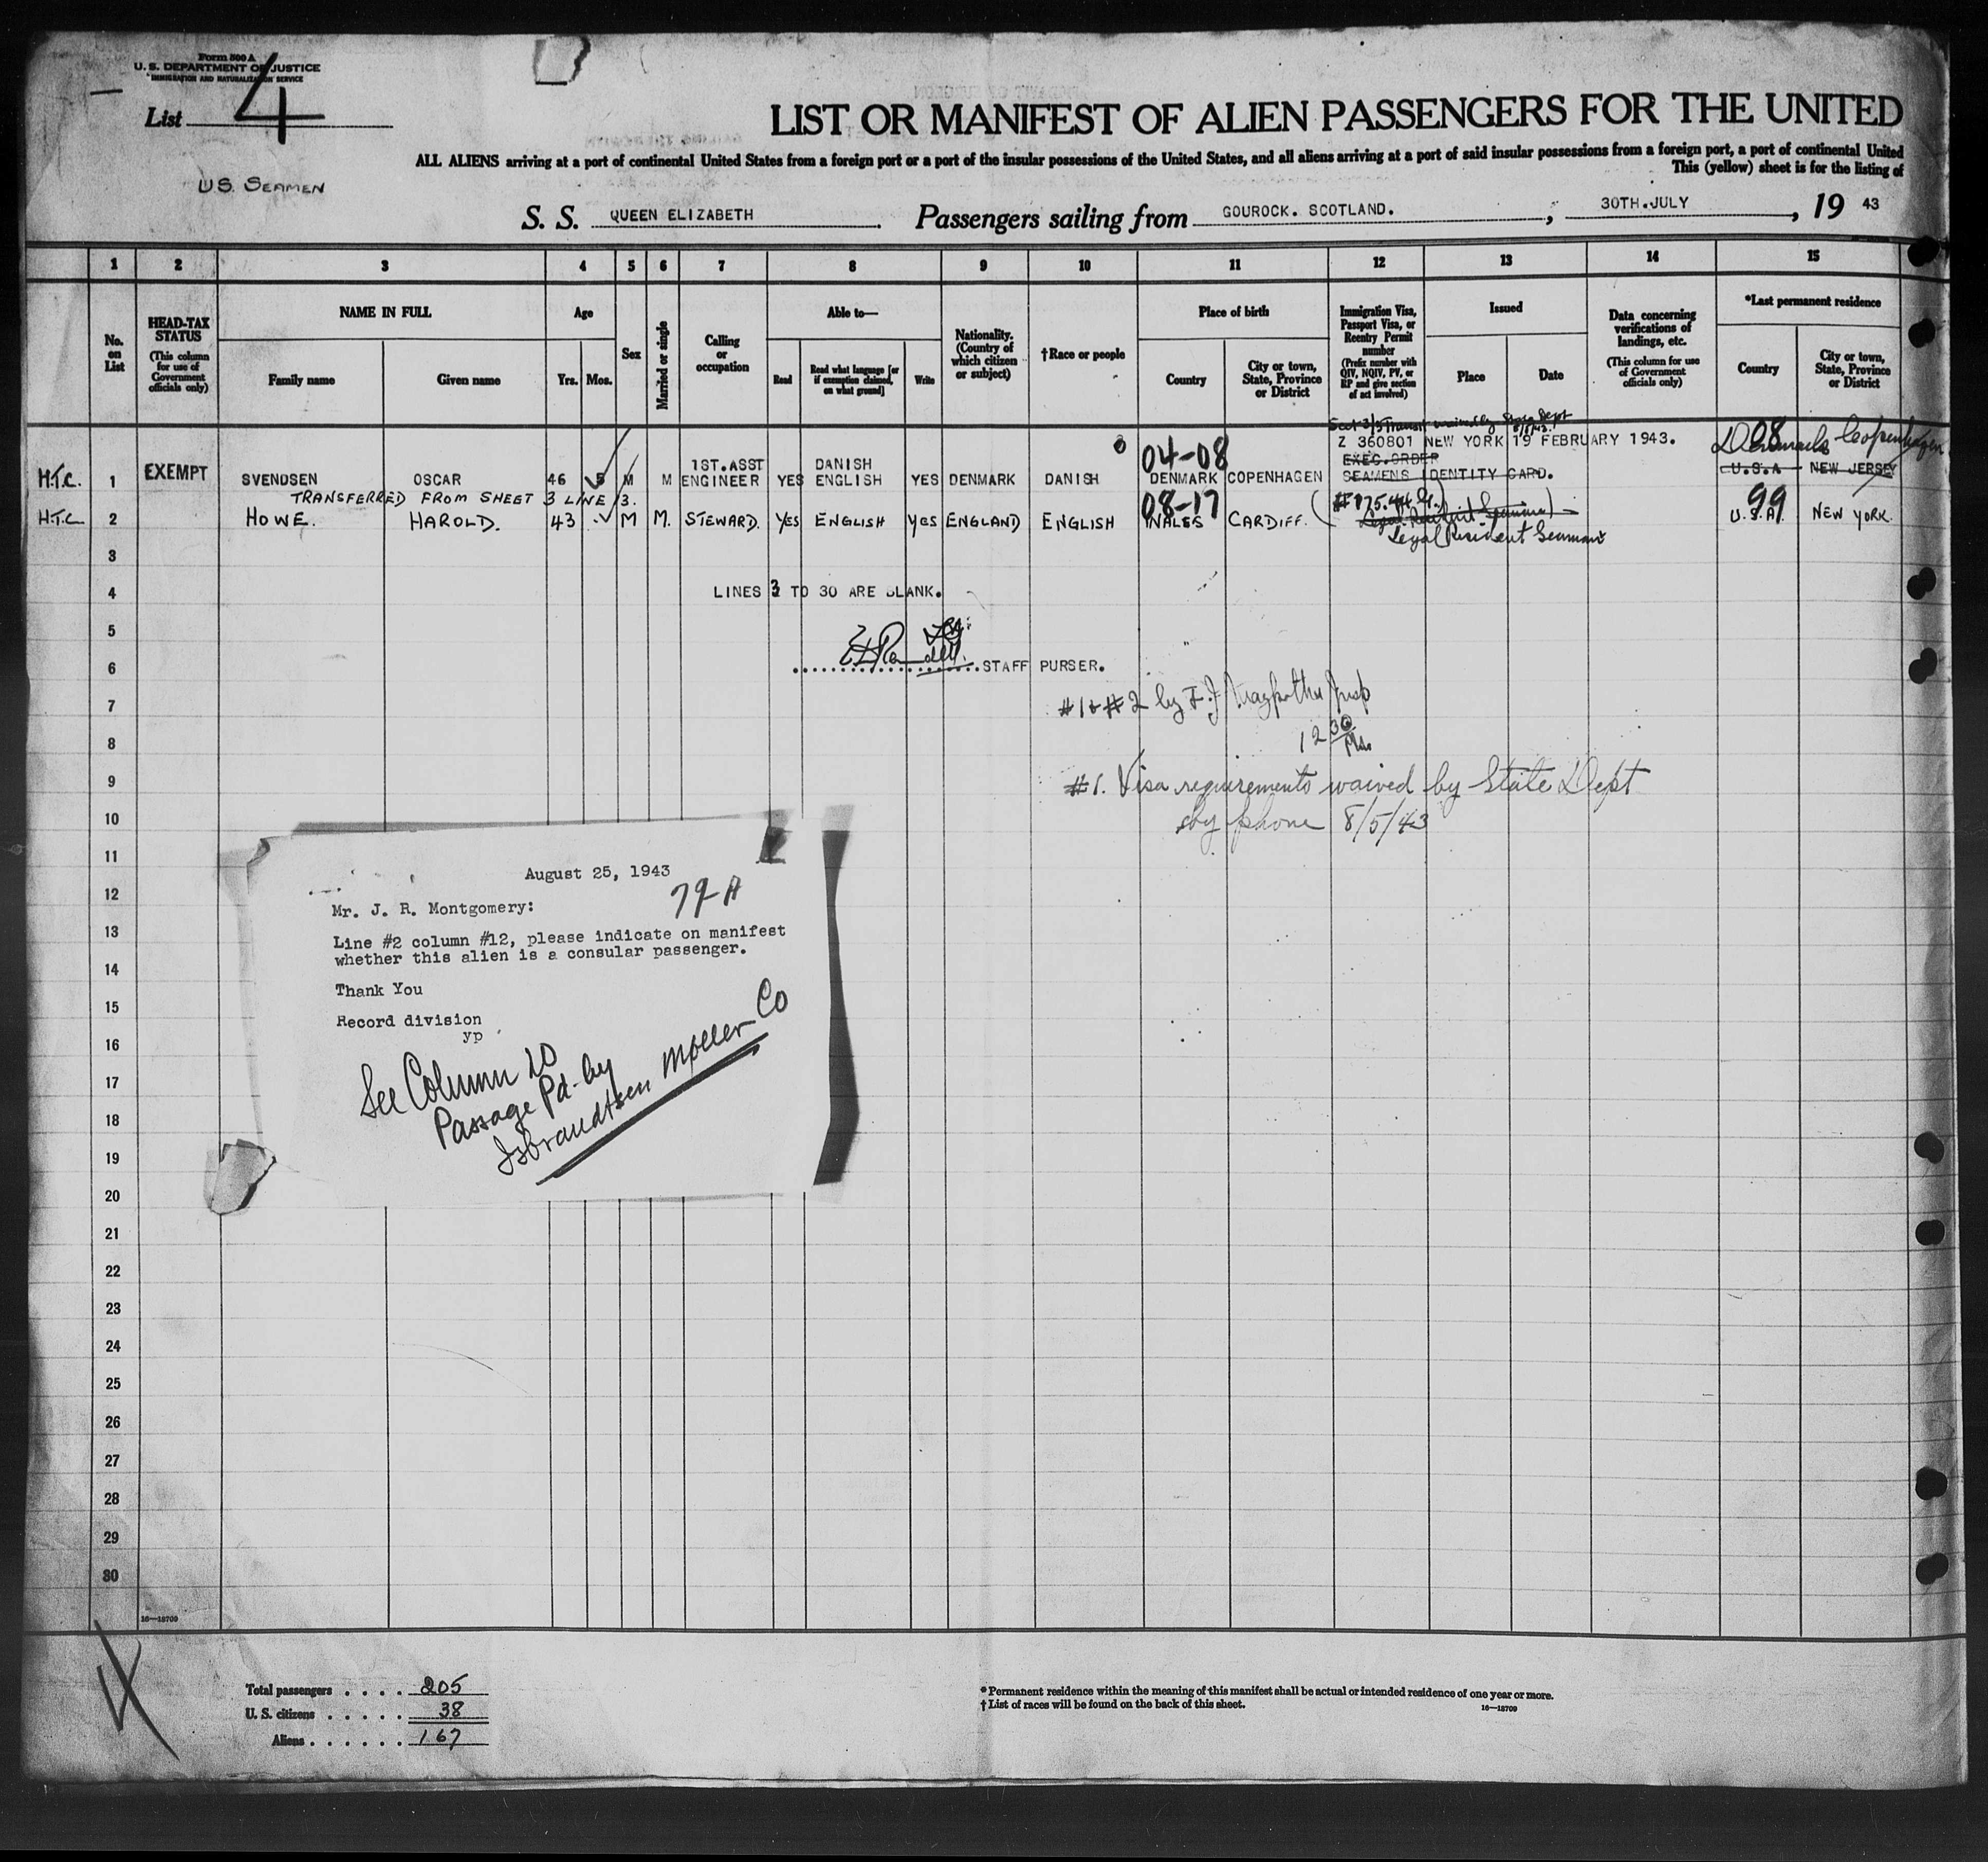 Form 500 A
U. S. DEPARTMENT OF JUSTICE
IMMIGRATION AND NATURALIZATION SERVICE
List 4
U.S. SEAMEN
LIST OR MANIFEST OF ALIEN PASSENGERS FOR THE UNITED
ALL ALIENS arriving at a port of continental United States from a foreign port or a port of the insular possessions of the United States, and all aliens arriving at a port of said insular possessions from a foreign port, a port of continental United
This (yellow) sheet is for the listing of
S. S. QUEEN ELIZABETH Passengers sailing from GOUROCK. SCOTLAND. , 30TH.JULY , 19 43
1 2 3 4 5 6 7 8 9 10 11 12 13 14 15
No. on List
HEAD-TAX STATUS
(This column for use of Government officials only)
NAME IN FULL
Family name Given name
Age
Yrs. Mos.
Sex
Married or single
Calling or occupation
Able to—
Read
Read what language [or if exemption claimed, on what ground]
Write
Nationality. (Country of which citizen or subject)
†Race or people
Place of birth
Country
City or town, State, Province or District
Immigration Visa, Passport Visa, or Reentry Permit number
(Prefix number with QIV, NQIV, PV, or RP and give section of act involved)
Issued
Place Date
Data concerning verifications of landings, etc.
(This column for use of Government officials only)
*Last permanent residence
Country
City or town, State, Province or District
Sect 3/5 Transit waived by State Dept
8/5/43.
Z 360801 NEW YORK 19 FEBRUARY 1943.
04-08 08 Denmark Copenhagen
H.T.C. 1 EXEMPT SVENDSEN OSCAR 46 M M 1ST.ASST ENGINEER YES DANISH ENGLISH YES DENMARK DANISH DENMARK COPENHAGEN EXEC.ORDER SEAMENS IDENTITY CARD. U.S.A NEW JERSEY
TRANSFERRED FROM SHEET 3 LINE 13.
08-17 99
H.T.C. 2 HOWE. HAROLD. 43 M M. STEWARD. YES ENGLISH YES ENGLAND ENGLISH WALES CARDIFF. U.S.A. NEW YORK.
Legal Resident Seaman
3
4 LINES 3 TO 30 ARE BLANK.
5
6 STAFF PURSER.
7 #1 & #2 by Insp
8 12 30
9 #1. Visa requirements waived by State Dept
10 by phone 8/5/43
11
12
13
14
15
16
17
18
19
20
21
22
23
24
25
26
27
28
29
30
August 25, 1943
79-A
Mr. J. R. Montgomery:
Line #2 column #12, please indicate on manifest
whether this alien is a consular passenger.
Thank You
Record division
yp
See Column 20
Passage Pd. by
Isbrandtsen Moller Co
16—18709
4
Total passengers . . . . 205
U. S. citizens . . . . . 38
Aliens . . . . . . 167
* Permanent residence within the meaning of this manifest shall be actual or intended residence of one year or more.
† List of races will be found on the back of this sheet.
16—18709